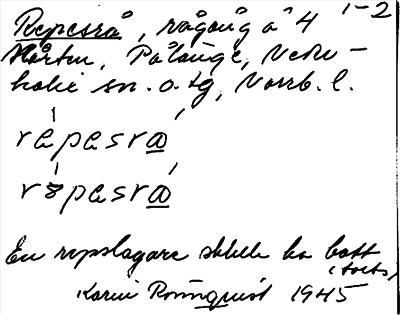 Repesrå, rågång å 4 1-2
Mårten, Pålänge, Neder-
kalix sn. o. tg, Norrb. l.
répesrǻ
rɞ́pesrǻ
En repslagare skulle ha bott
(torts)
Karin Rönnquist 1945